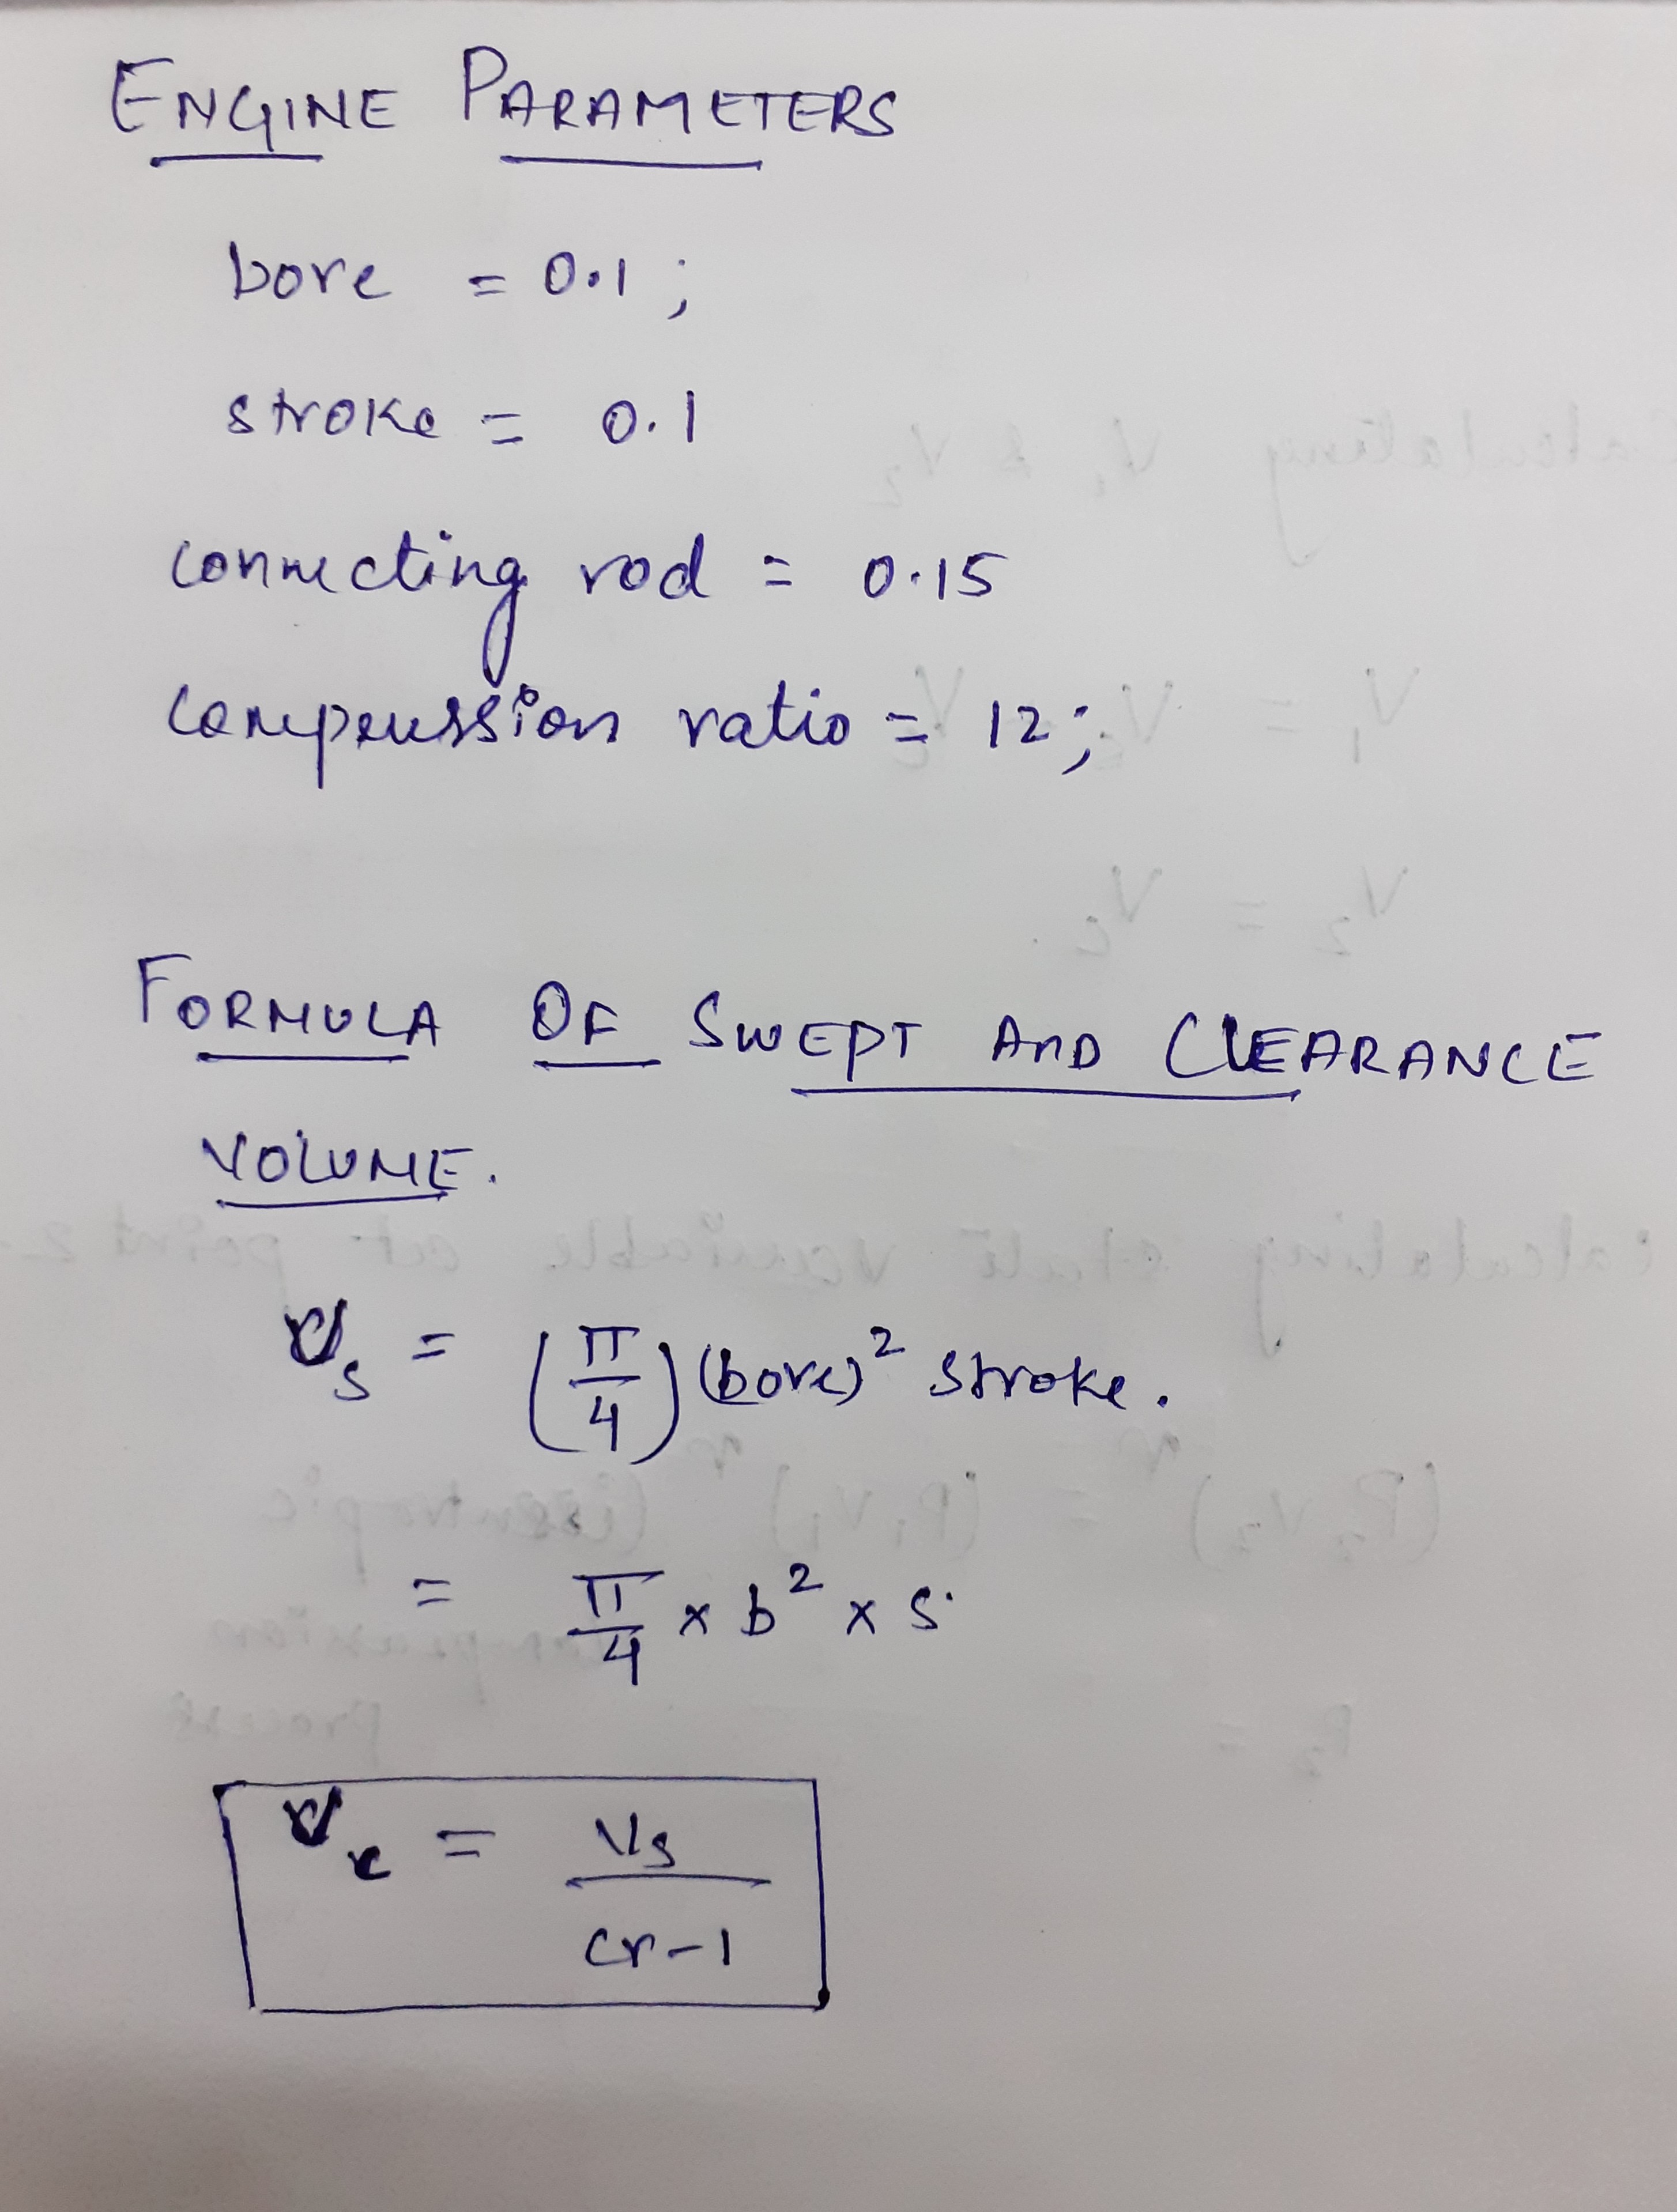 ENGINE PARAMETERS
bore = 0.1 ;
stroke = 0.1
connecting rod = 0.15
compression ratio = 12 ;
FORMULA OF SWEPT AND CLEARANCE
VOLUME.
Vs = (π/4) (bore)² stroke.
= π/4 × b² × s.
Vc = Vs / cr-1